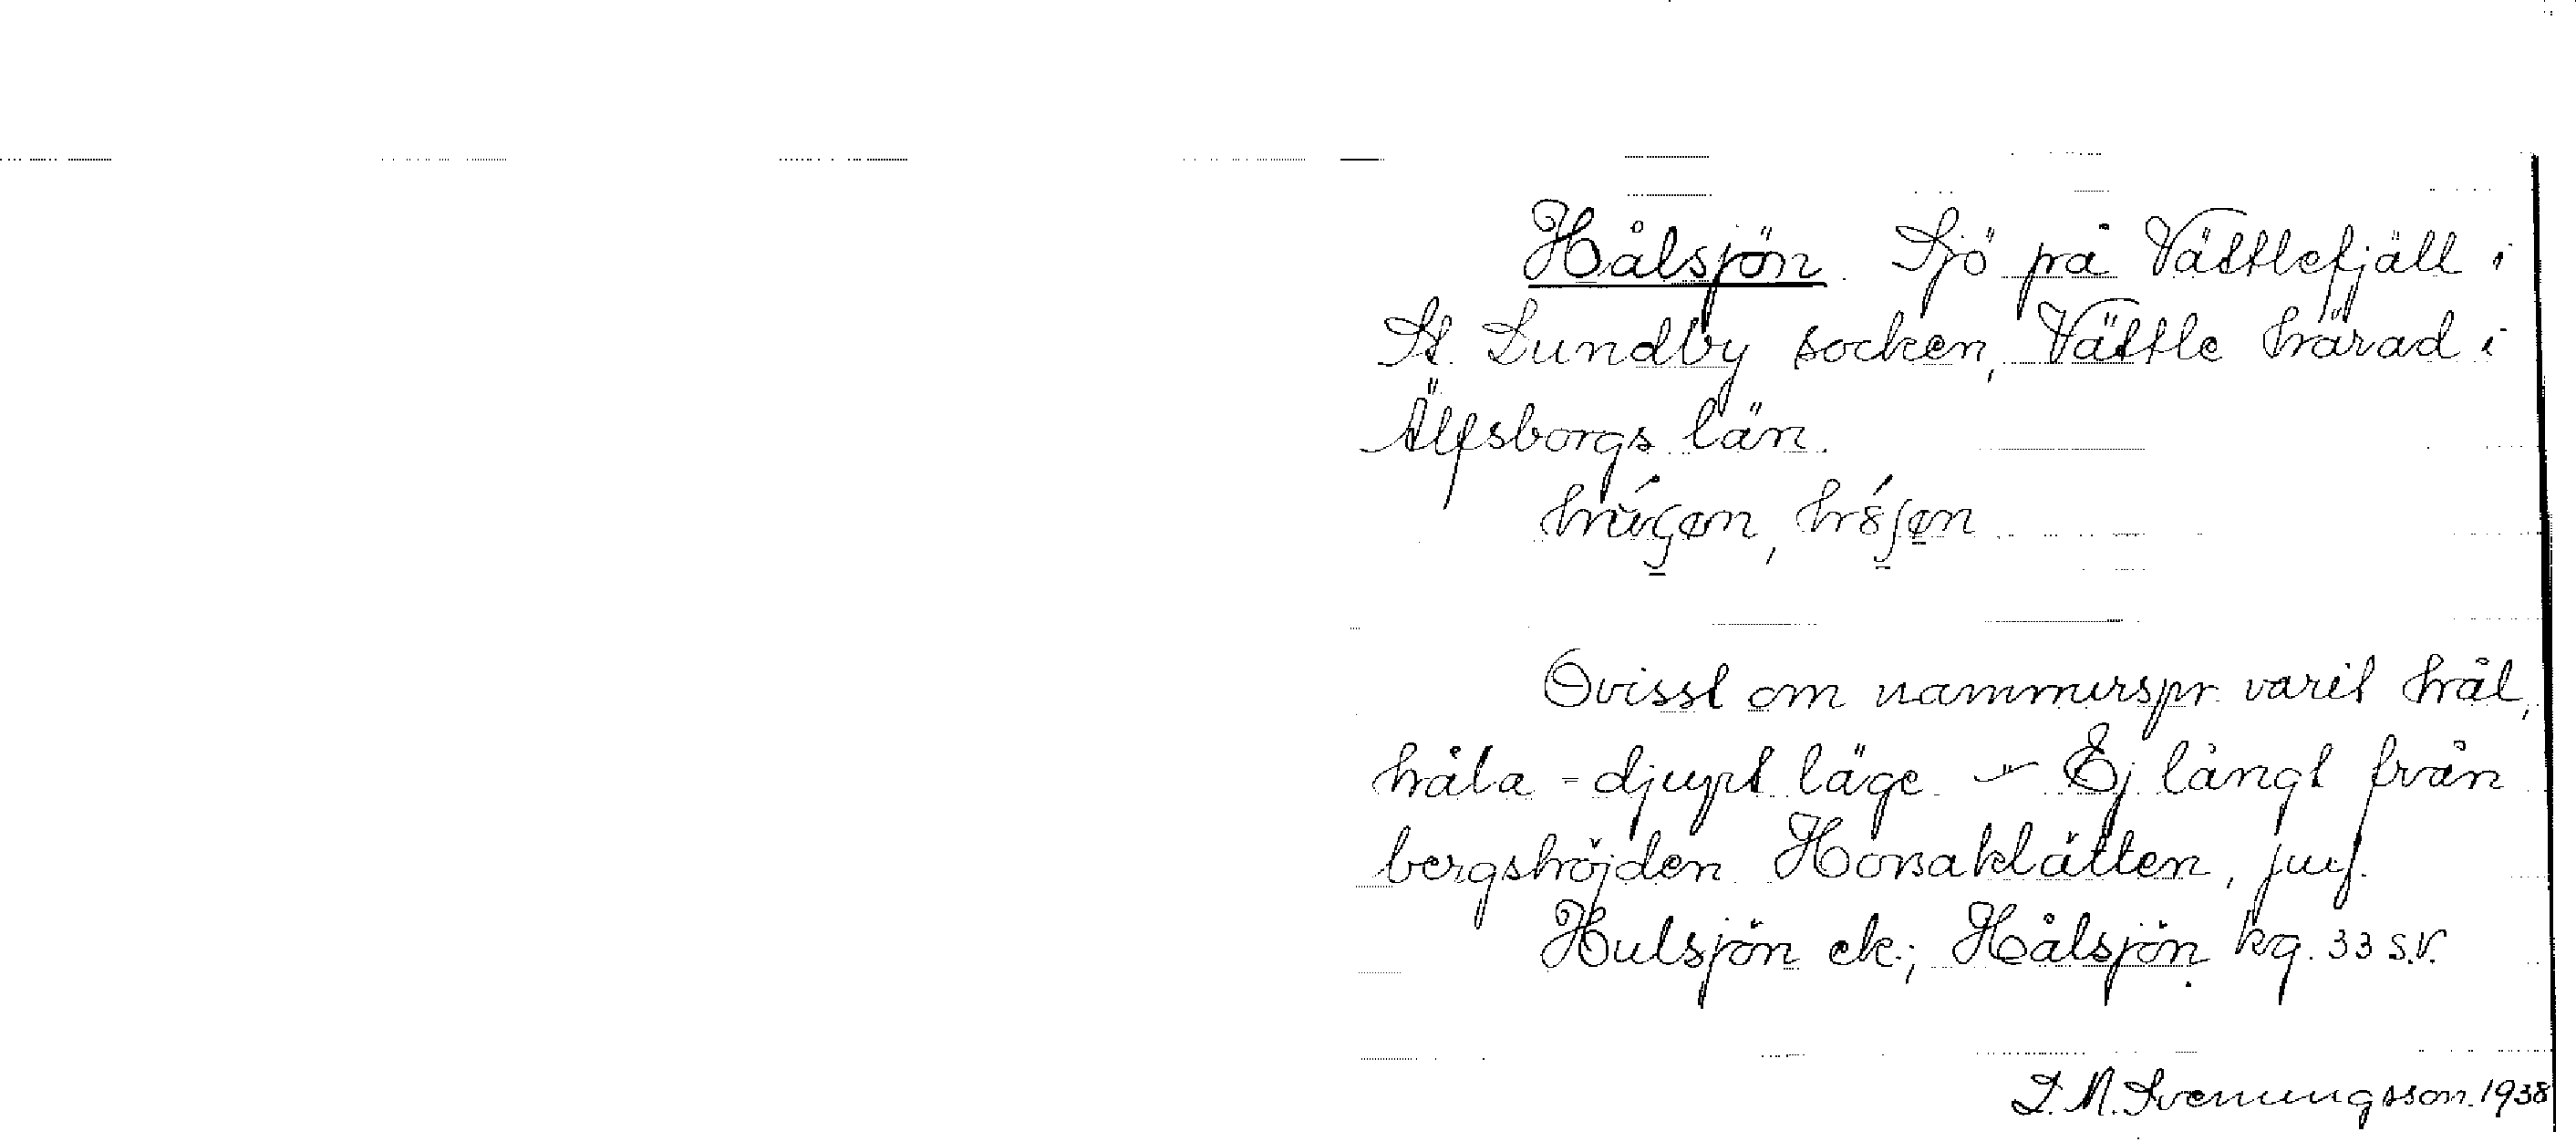 Hålsjön. Sjö på Vättlefjäll i
St. Lundby socken, Vättle härad i
Älfsborgs län.
Ovisst om namnurspr. varit hål,
håla - djupt läge. - Ej långt från
bergshöjden klätten, jmf.
Hulsjön ek.; Hålsjön kg. 33 S.V.
Svenungsson. 1938